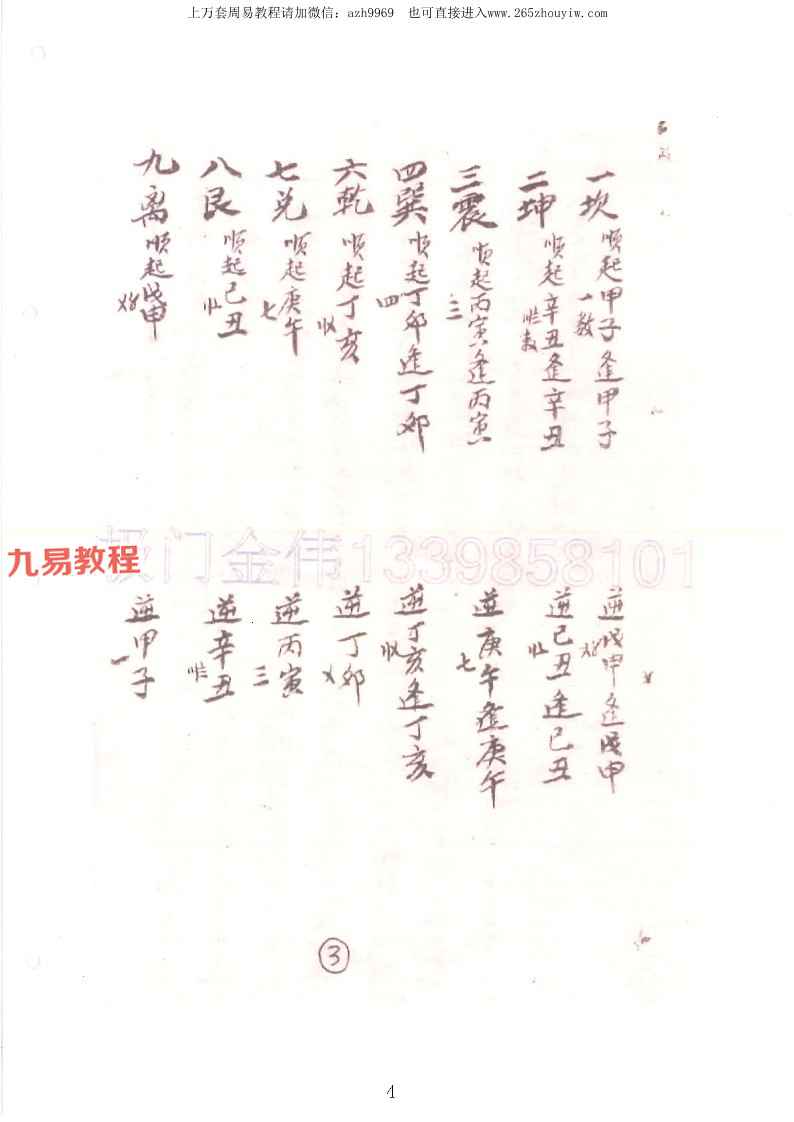 上万套周易教程请加微信: azh9969 也可直接进入www.265zhouyiw.com
一坎顺起甲子逢甲子
一数
二坤顺起辛丑逢辛丑
三震顺起丙寅逢丙寅
三
四巽顺起丁卯逢丁卯
四
六乾顺起丁亥
七兑顺起庚午
七
八艮顺起己丑
九离顺起戊申
极门金伟1339858101
九易教程
逆戊申逢戊申
逆己丑逢己丑
逆庚午逢庚午
七
逆丁亥逢丁亥
逆丁卯
逆丙寅
三
逆辛丑
逆甲子
一
3
4